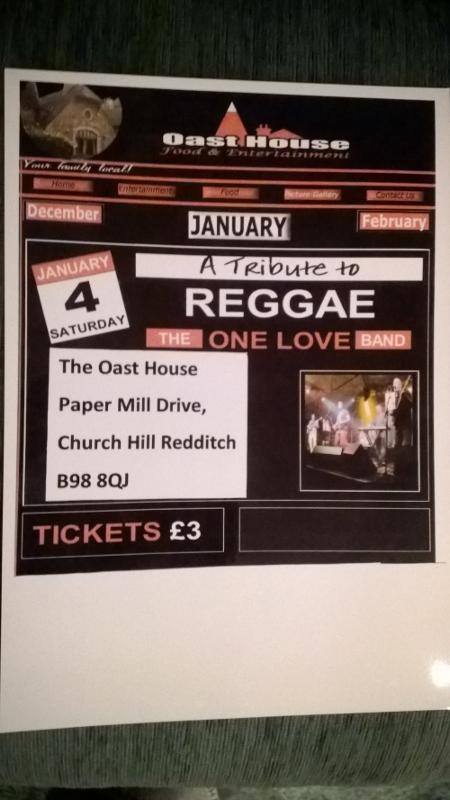 Oast House
Food & Entertainment
Your family local!
Home Entertainment Food Picture Gallery Contact Us
December JANUARY February
JANUARY
4
SATURDAY
A Tribute to
REGGAE
THE ONE LOVE BAND
The Oast House
Paper Mill Drive,
Church Hill Redditch
B98 8QJ
TICKETS £3